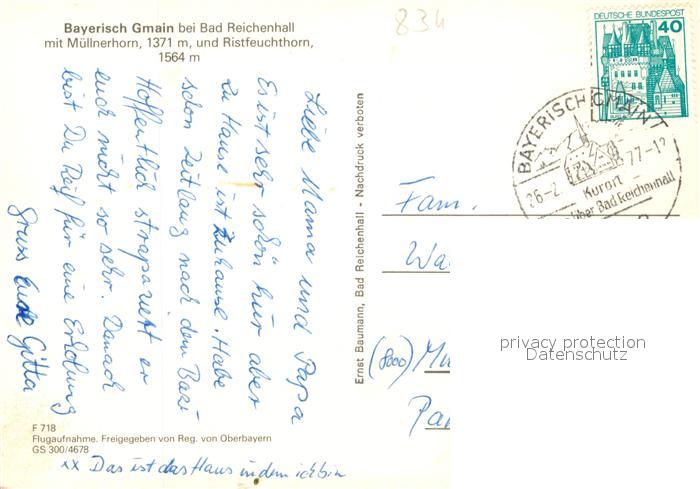 834
Bayerisch Gmain bei Bad Reichenhall
mit Müllnerhorn, 1371 m, und Ristfeuchthorn,
1564 m
DEUTSCHE BUNDESPOST
40
BAYERISCH GMAIN
26.-2. 77-1
Kurort
über Bad Reichenhall
Liebe Mama und Papa
Es ist sehr schön hier aber
zu Hause ist Zuhause. Habe
schon Zeitlang nach dem Bazi
Hoffentlich strapaziert er
euch nicht so sehr. Danach
bist Du Reif für eine Erholung
Gruss Eure Gitta
Ernst Baumann, Bad Reichenhall - Nachdruck verboten
Fam.
Wa
(8000) Mu
Pa
privacy protection
Datenschutz
F 718
Flugaufnahme. Freigegeben von Reg. von Oberbayern
GS 300/4678
xx Das ist das Haus in dem ich bin